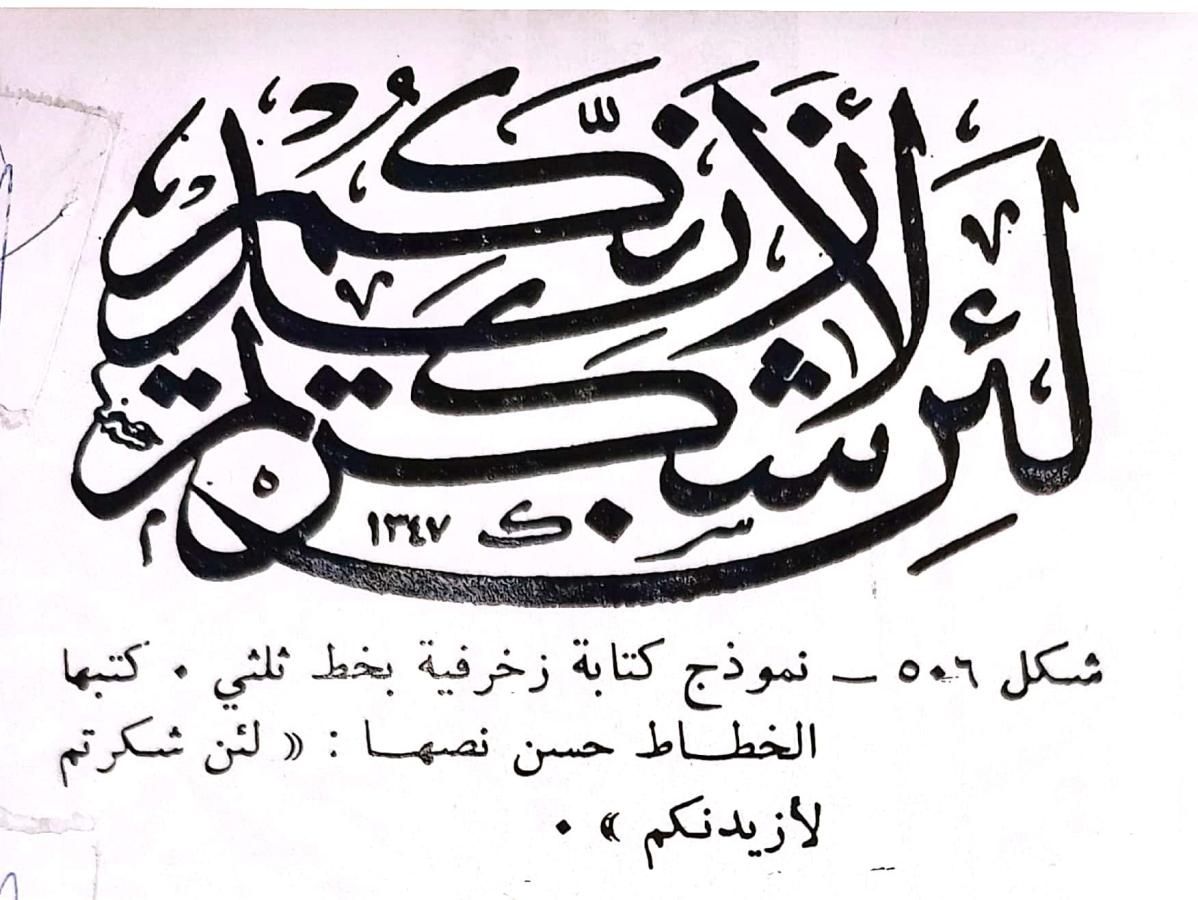 لئن شكرتم لأزيدنكم
١٣٤٧
شكل ٥٠٦ — نموذج كتابة زخرفية بخط ثلثي . كتبها
الخطاط حسن نصها : « لئن شكرتم
لأزيدنكم » .